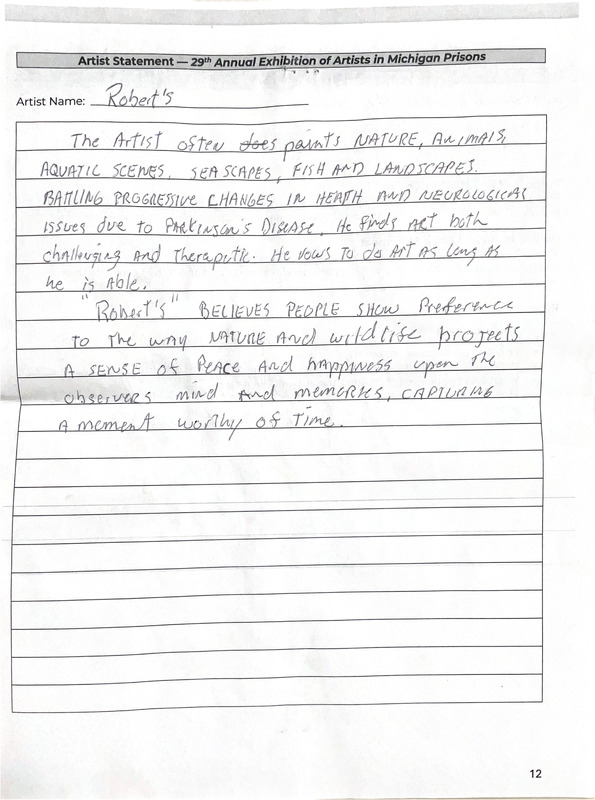 Artist Statement — 29th Annual Exhibition of Artists in Michigan Prisons
Artist Name: Robert's
The Artist often does paints NATURE, ANIMALS,
AQUATIC SCENES, SEASCAPES, FISH AND LANDSCAPES.
BATTLING PROGRESSIVE CHANGES IN HEATH AND NEUROLOGICAL
issues due to PARKINSON'S DISEASE, He finds ART both
challenging And Theraputic. He vows To do Art As long As
he is Able.
"Robert's" BELIEVES PEOPLE SHOW Preference
TO The way NATURE And wildlife projects
A SENSE of Peace And happiness upon The
observers mind And memories, CAPTURING
A moment worthy of Time.
12